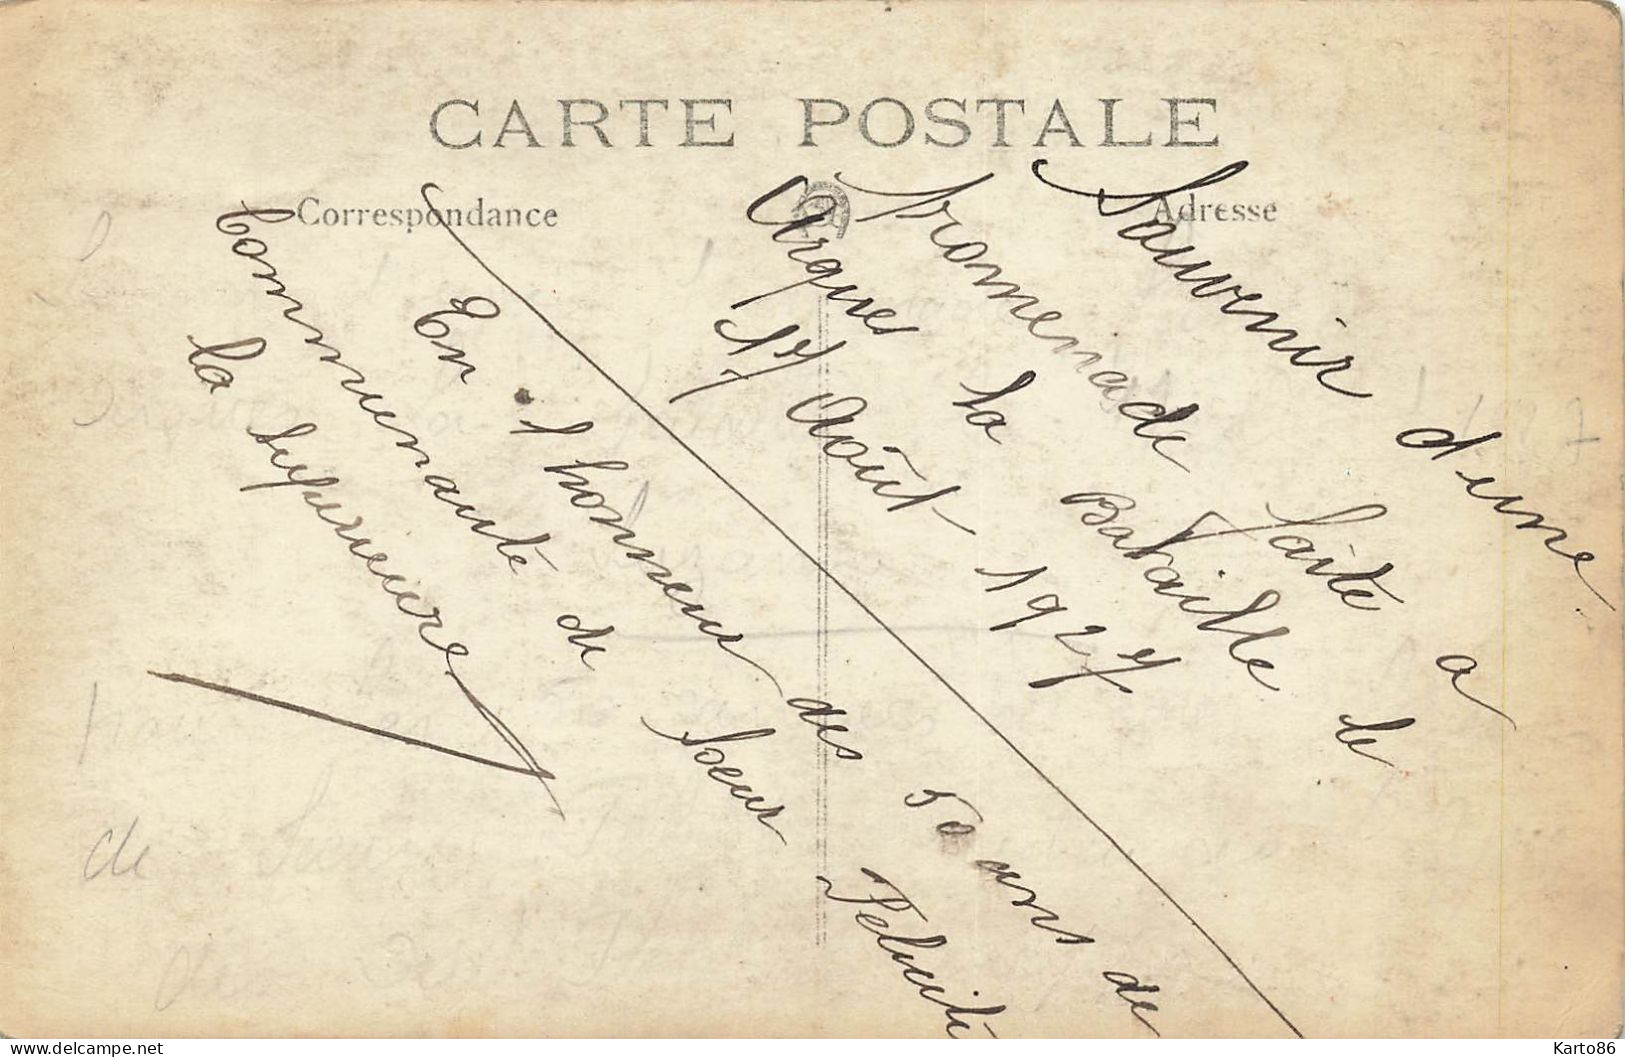 CARTE POSTALE
Correspondance
Adresse
Souvenir d'une
Promenade faite a
Arques la Bataille le
17 Août 1927
En l'honneur des 50 ans de
Communauté de Soeur
la Supérieure
delcampe.net
Karto86